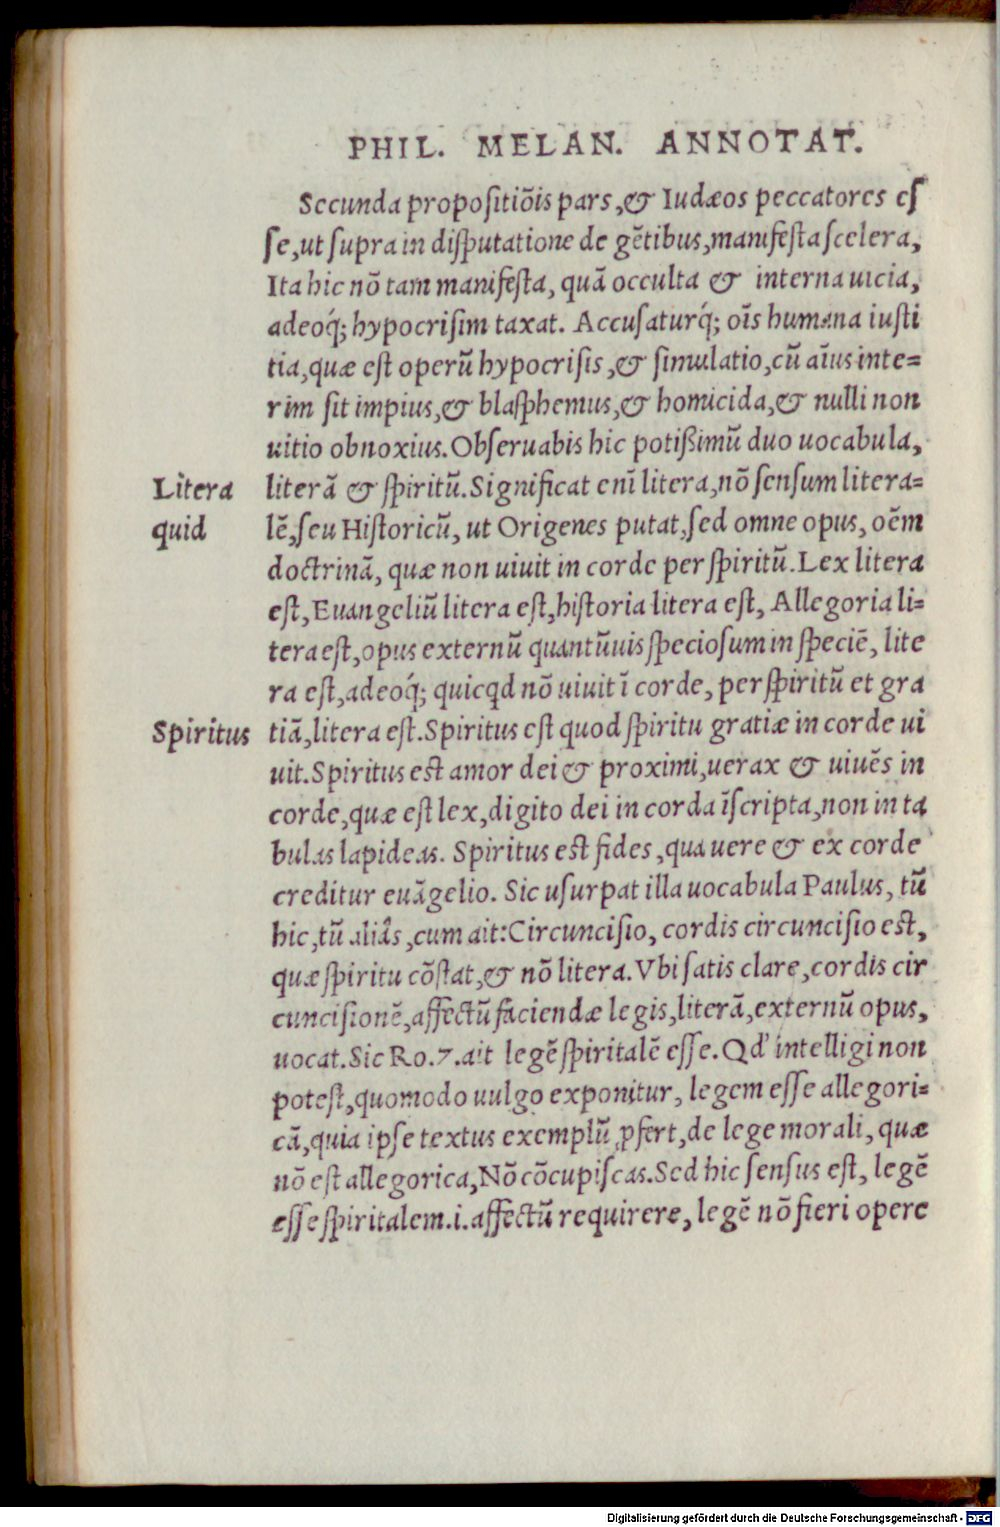 PHIL. MELAN. ANNOTAT.
Secunda propoſitiõis pars, & Iudæos peccatores eſ
ſe, ut ſupra in diſputatione de gẽtibus, manifeſta ſcelera,
Ita hic nõ tam manifeſta, quã occulta & interna uicia,
adeoq́; hypocriſim taxat. Accuſaturq́; oĩs humana iuſti
tia, quæ eſt operũ hypocriſis, & ſimulatio, cũ aĩus inte=
rim ſit impius, & blaſphemus, & homicida, & nulli non
uitio obnoxius. Obſeruabis hic potißimũ duo uocabula,
Litera
literã & ſpiritũ. Significat enĩ litera, nõ ſenſum litera=
quid
lẽ, ſeu Hiſtoricũ, ut Origenes putat, ſed omne opus, oẽm
doctrinã, quæ non uiuit in corde per ſpiritũ. Lex litera
eſt, Euangeliũ litera eſt, hiſtoria litera eſt, Allegoria li=
tera eſt, opus externũ quantũuis ſpecioſum in ſpeciẽ, lite
ra eſt, adeoq́; quicqd nõ uiuit ĩ corde, per ſpiritũ et gra
Spiritus
tiã, litera eſt. Spiritus eſt quod ſpiritu gratiæ in corde ui
uit. Spiritus est amor dei & proximi, uerax & uiuẽs in
corde, quæ eſt lex, digito dei in corda ĩſcripta, non in ta
bulas lapideas. Spiritus est fides, qua uere & ex corde
creditur euãgelio. Sic uſurpat illa uocabula Paulus, tũ
hic, tũ aliâs, cum ait: Circunciſio, cordis circunciſio eſt,
quæ ſpiritu cõſtat, & nõ litera. Vbi ſatis clare, cordis cir
cunciſionẽ, affectũ faciendæ legis, literã, externũ opus,
uocat. Sic Ro. 7. ait legẽ ſpiritalẽ eſſe. Qd' intelligi non
poteſt, quomodo uulgo exponitur, legem eſſe allegori=
cã, quia ipſe textus exemplũ ꝓfert, de lege morali, quæ
nõ eſt allegorica, Nõ cõcupiſcas. Sed hic ſenſus eſt, legẽ
eſſe ſpiritalem .i. affectũ requirere, legẽ nõ fieri opere
Digitalisierung gefördert durch die Deutsche Forschungsgemeinschaft - DFG